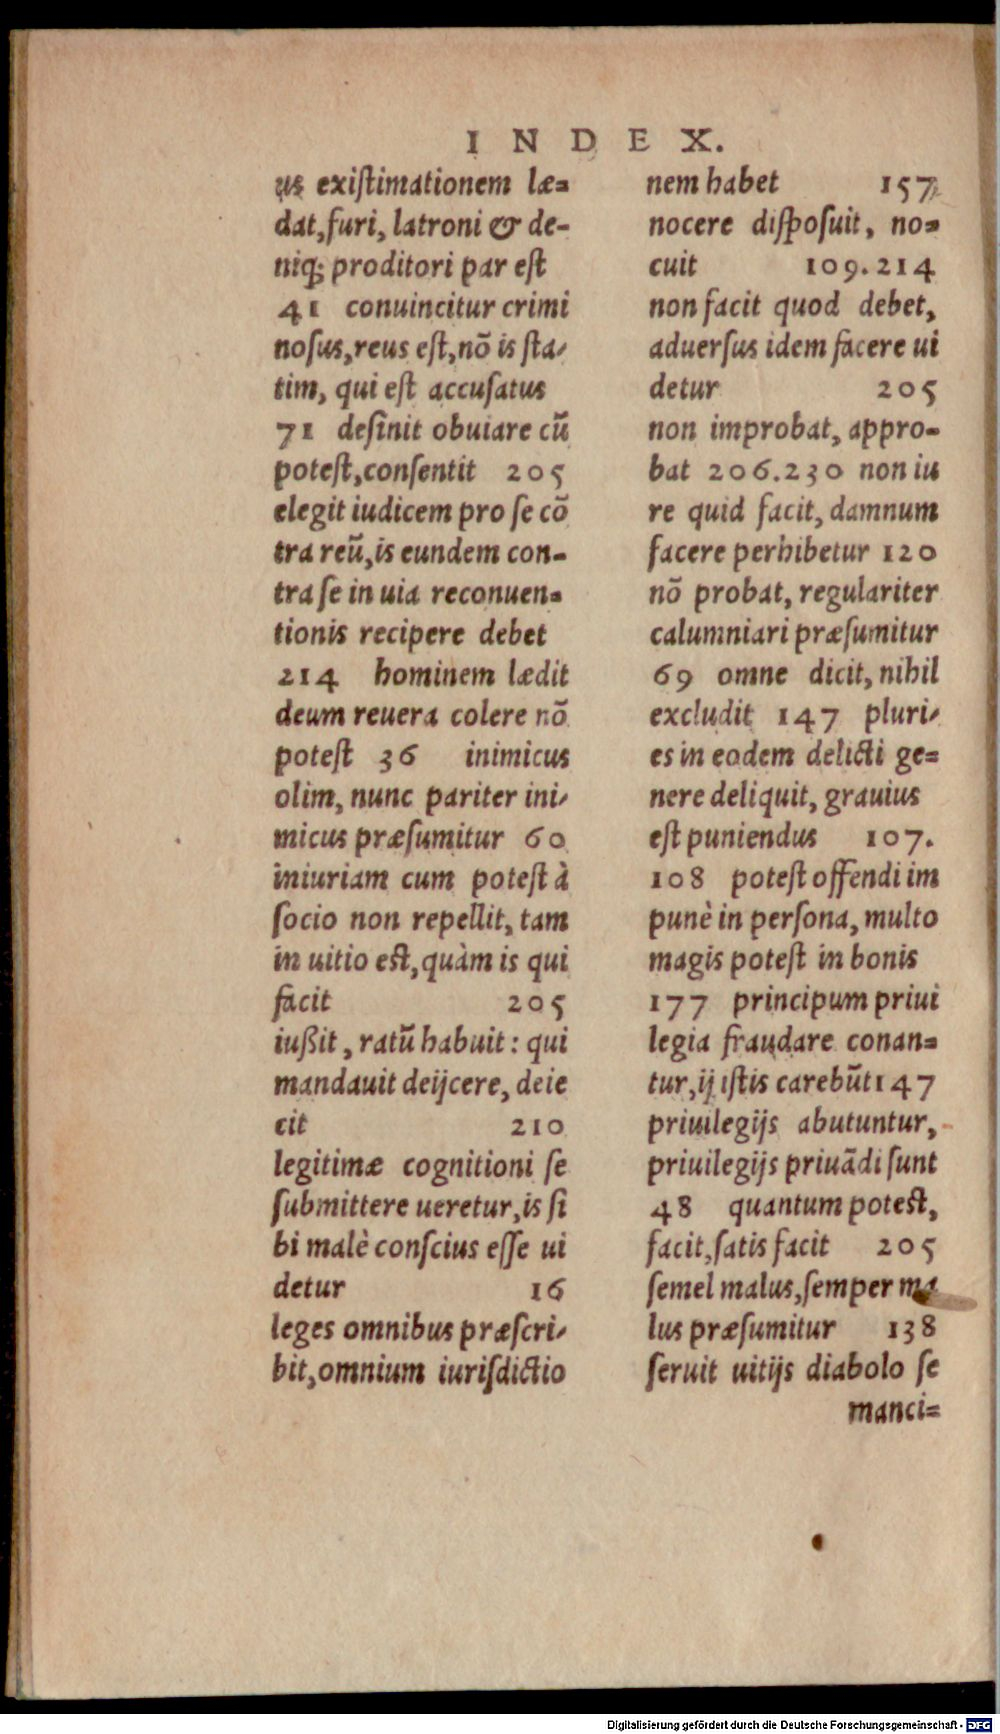 INDEX.
us exiſtimationem læ=
dat, furi, latroni & de-
niq; proditori par eſt
41 conuincitur crimi
noſus, reus eſt, nõ is ſta-
tim, qui eſt accuſatus
71 deſinit obuiare cũ
poteſt, conſentit 205
elegit iudicem pro ſe cõ
tra reũ, is eundem con=
tra ſe in uia reconuen=
tionis recipere debet
214 hominem lædit
deum reuera colere nõ
poteſt 36 inimicus
olim, nunc pariter ini-
micus præſumitur 60
iniuriam cum poteſt à
ſocio non repellit, tam
in uitio eſt, quàm is qui
facit 205
iußit, ratũ habuit: qui
mandauit deijcere, deie
cit 210
legitimæ cognitioni ſe
ſubmittere ueretur, is ſi
bi malè conſcius eſſe ui
detur 16
leges omnibus præſcri-
bit, omnium iuriſdictio
nem habet 157
nocere diſpoſuit, no=
cuit 109.214
non facit quod debet,
aduerſus idem facere ui
detur 205
non improbat, appro=
bat 206.230 non iu
re quid facit, damnum
facere perhibetur 120
nõ probat, regulariter
calumniari præſumitur
69 omne dicit, nihil
excludit 147 pluri-
es in eodem delicti ge=
nere deliquit, grauius
eſt puniendus 107.
108 poteſt offendi im
punè in perſona, multo
magis poteſt in bonis
177 principum priui
legia fraudare conan=
tur, ij iſtis carebũt 147
priuilegijs abutuntur,
priuilegijs priuãdi ſunt
48 quantum poteſt,
facit, ſatis facit 205
ſemel malus, ſemper ma
lus præſumitur 138
ſeruit uitijs diabolo ſe
manci=
Digitalisierung gefördert durch die Deutsche Forschungsgemeinschaft - DFG